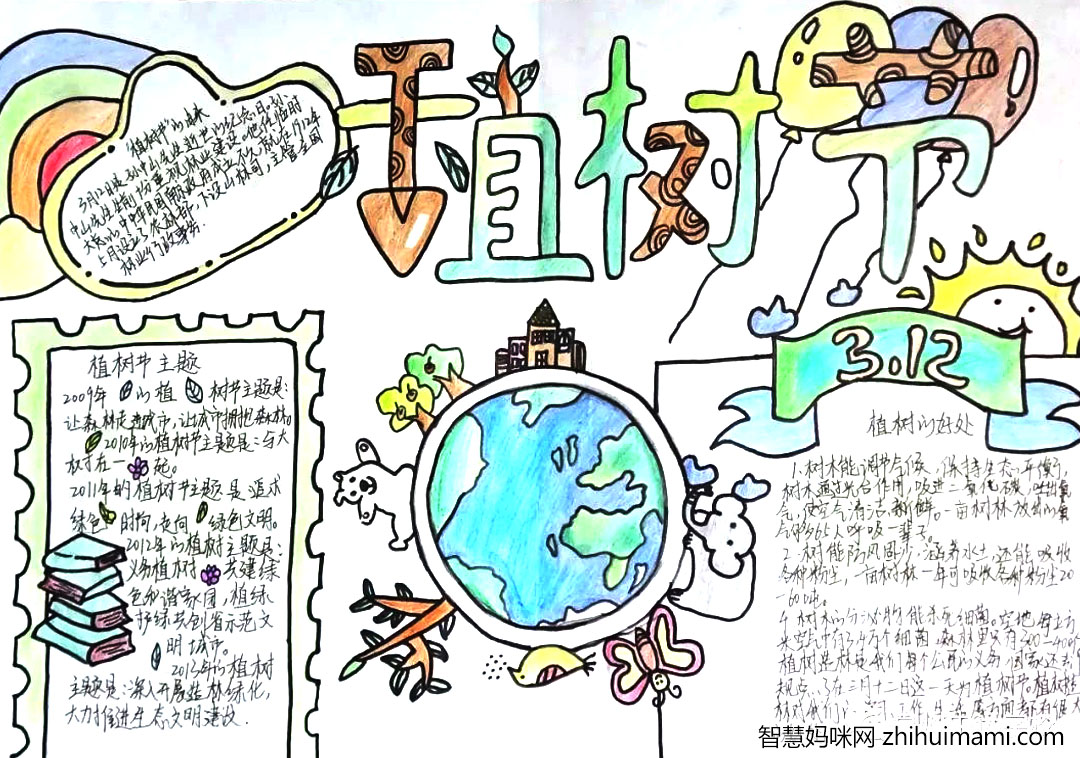 植树节
"植树节"的由来
3月12日是孙中山先生逝世的纪念日。孙
中山先生生前十分重视林业建设。他任临时
大总统的中华民国南京政府成立不久,就在1912年
5月设立了农林部,下设山林司,主管全国
林业行政事务.
植树节主题
2009年的植树节主题是:
让森林走进城市,让城市拥抱森林。
2010年的植树节主题是:与大
树在一起。
2011年的植树节主题是追求
绿色时尚,走向绿色文明。
2012年的植树主题是:
义务植树共建绿
色和谐家园,植绿
护绿共创省示范文
明城市。
2013年的植树
主题是:深入开展造林绿化,
大力推进生态文明建设.
3.12
植树的好处
1.树木能调节气候,保持生态平衡,
树木通过光合作用,吸进二氧化碳,吐出氧
气,使空气清洁、新鲜。一亩树林放出的氧
气够65人呼吸一辈子。
2.树能防风固沙,涵养水土,还能吸收
各种粉尘,一亩树林一年可吸收各种粉尘20
-60吨。
树木的分泌物能杀死细菌。空地每立方
米空气中有3-4万个细菌,森林里只有300-400个
植树造林是我们每个公民的义务
在三月十二日这一天为植树节。
智慧妈咪网 zhihuimami.com